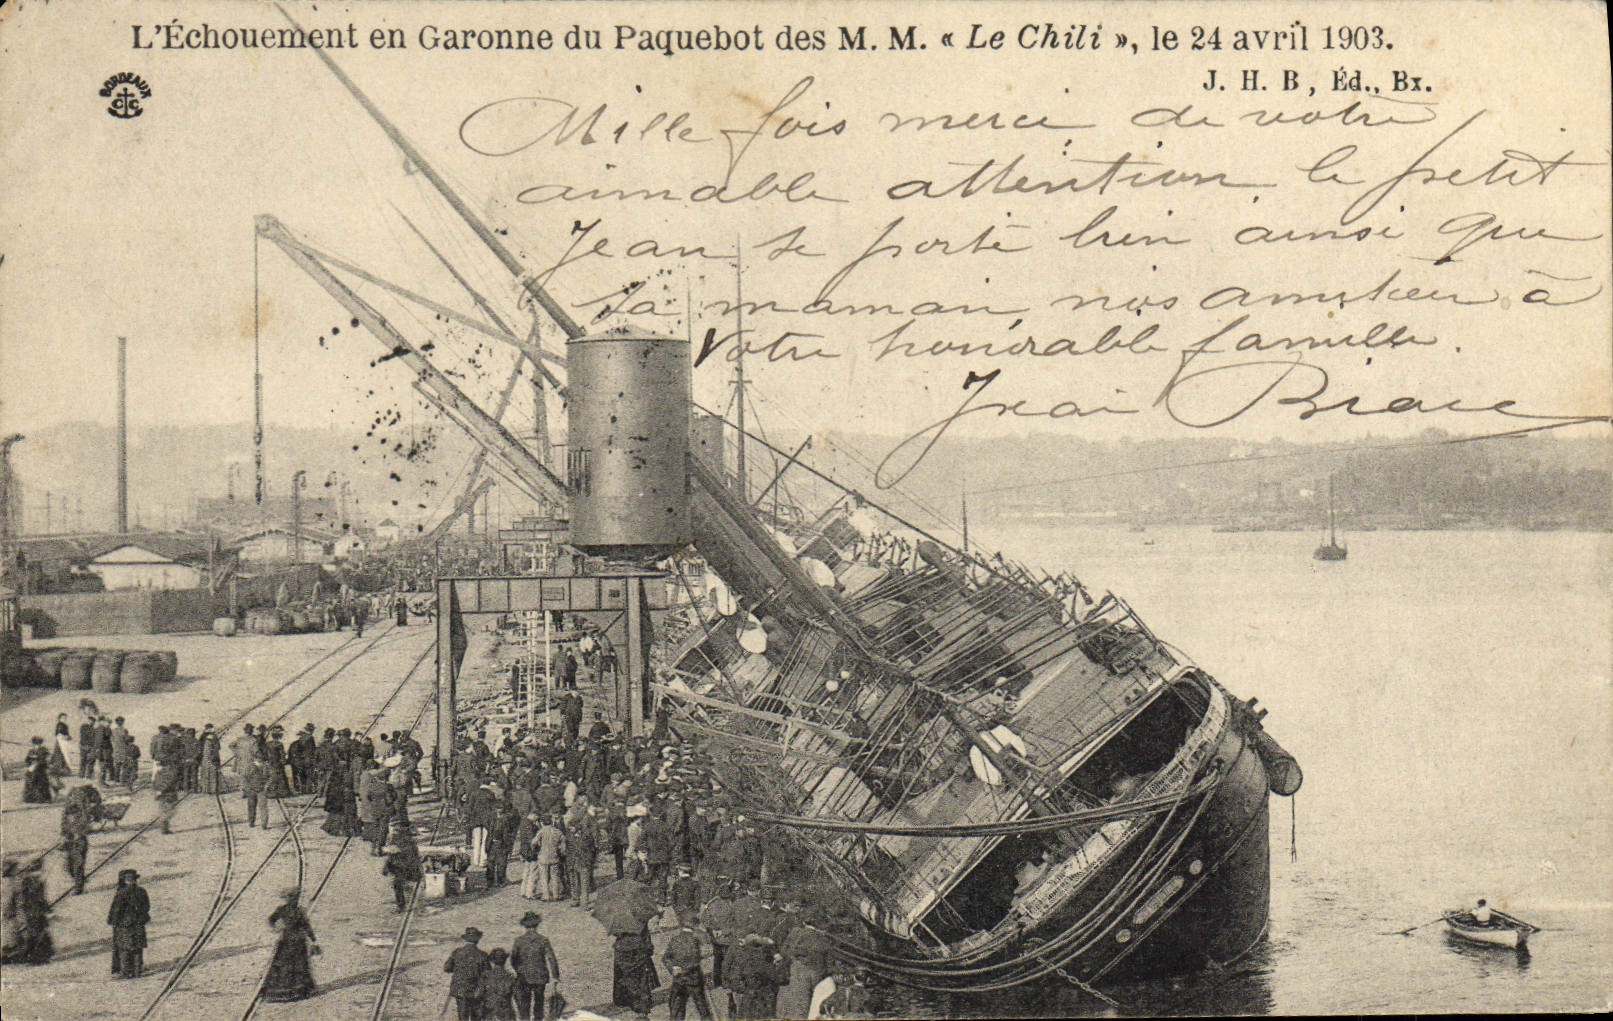 L'Échouement en Garonne du Paquebot des M. M. « Le Chili », le 24 avril 1903.
J. H. B, Éd., Bx.
BORDEAUX
C C
Mille fois merci de votre
aimable attention le petit
Jean se porte bien ainsi que
sa maman, nos amitiés à
Votre honorable famille.
Jean